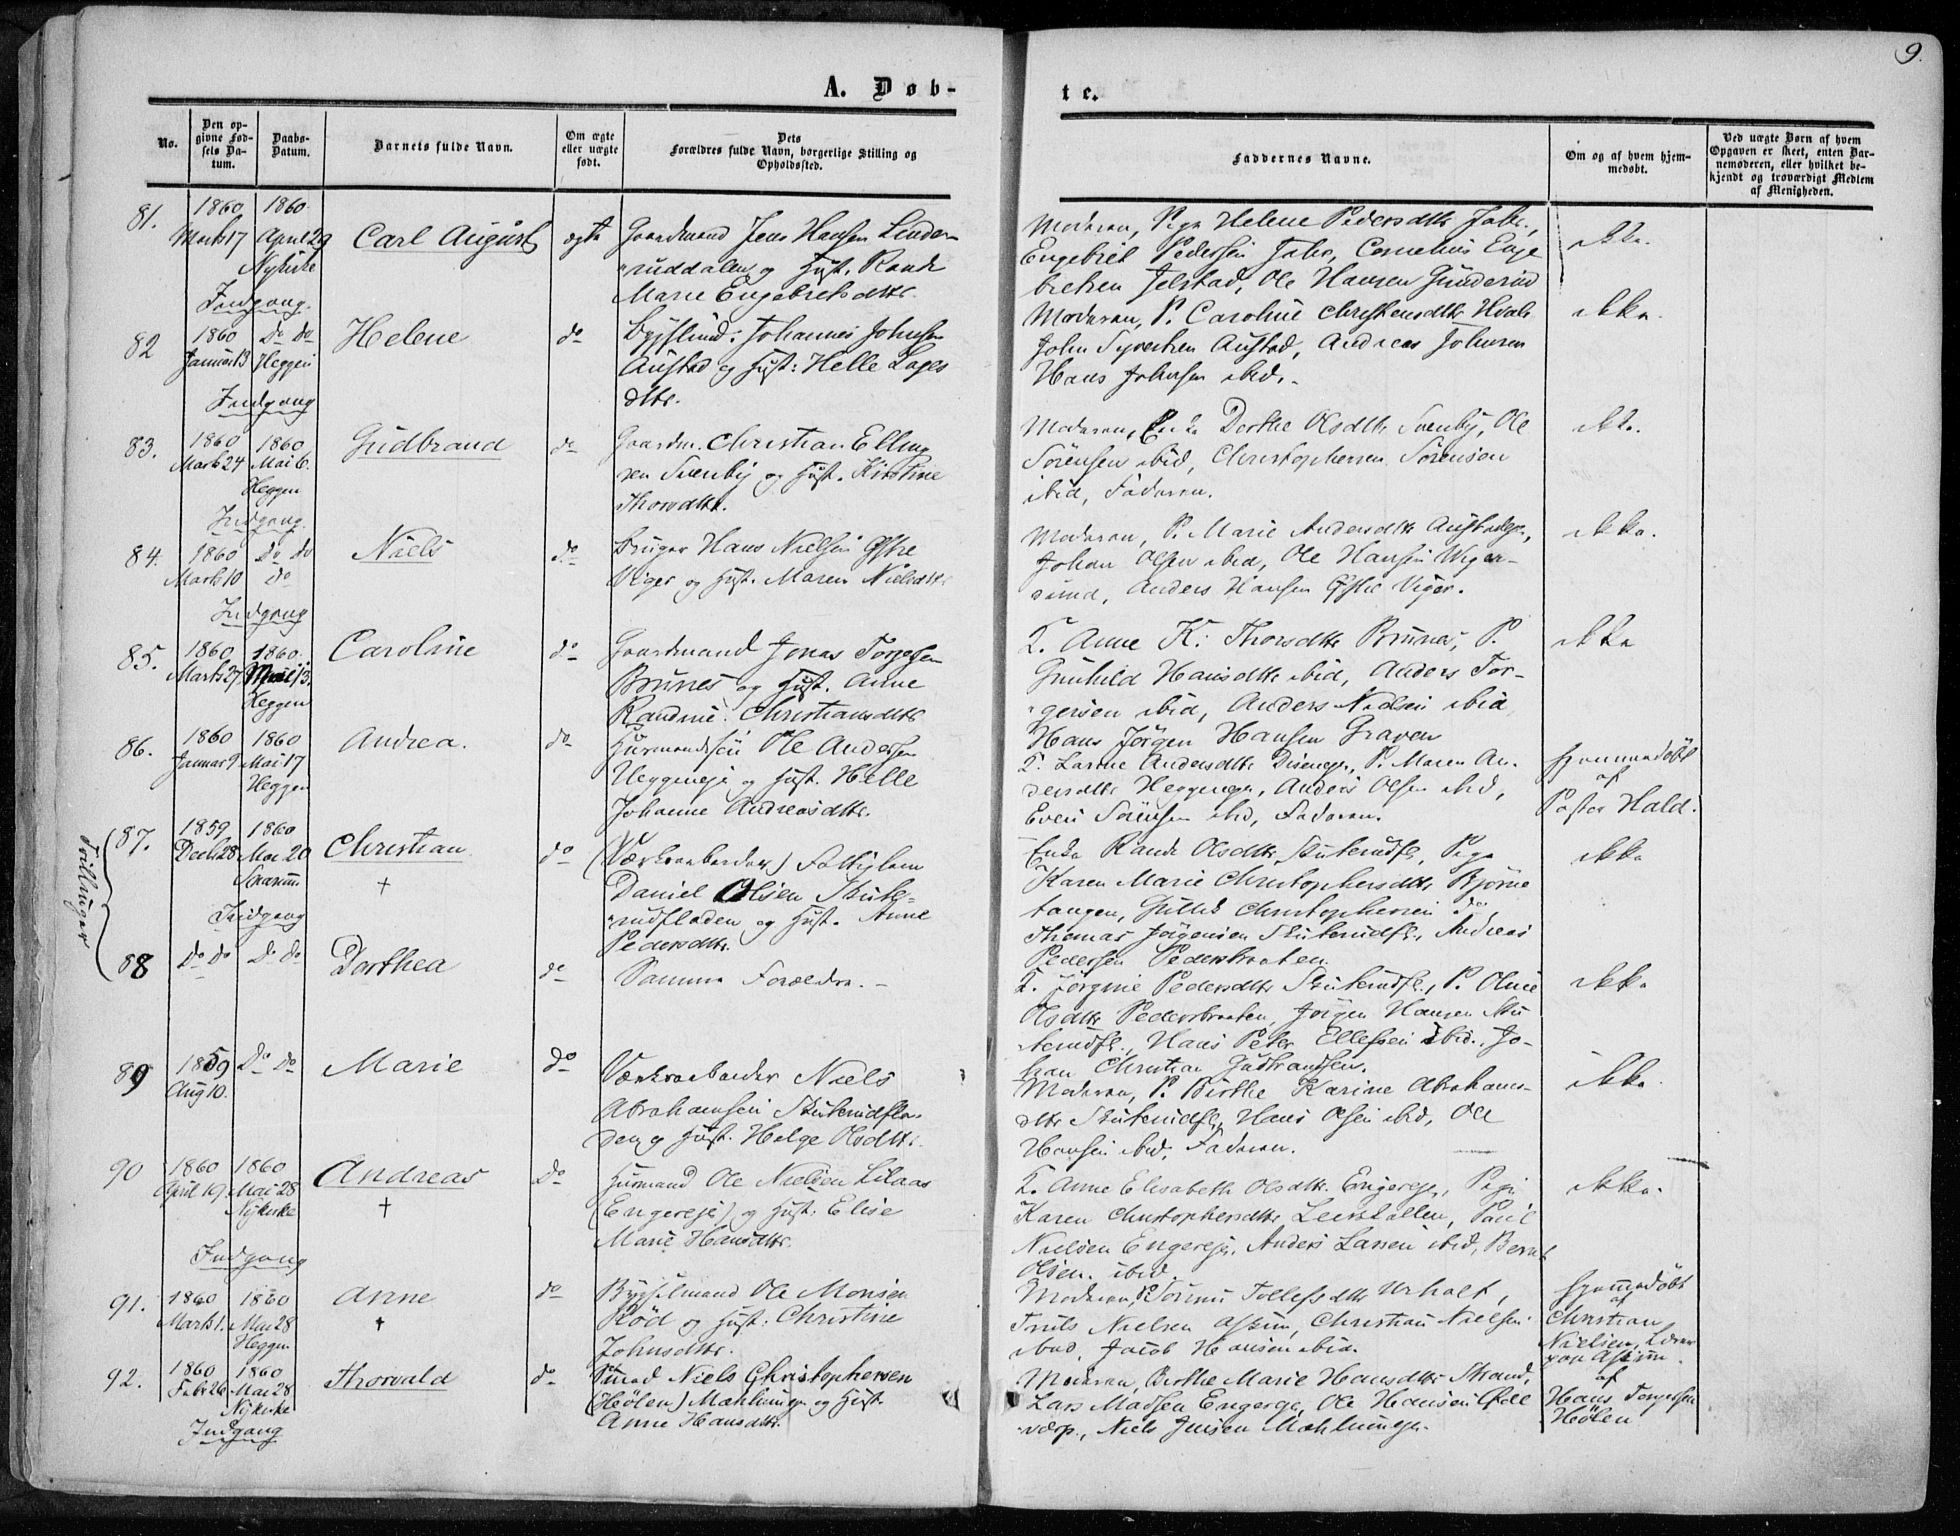 9.
A. Døb-
te.
No.
Den op-
givne Fød-
sels Da-
tum.
Daabs-
Datum.
Barnets fulde Navn.
Om ægte
eller uægte
født.
Dets
Forældres fulde Navn, borgerlige Stilling og
Opholdssted.
Faddernes Navne.
Om og af hvem hjem-
medøbt.
Ved uægte Børn af hvem
Opgaven er skeet, enten Bar-
nemoderen, eller hvilket be-
kjendt og troværdigt Medlem
af Menigheden.
81.
1860
Marts 17
1860
April 29
Nykirke
Indgang.
Carl August
ægte
Gaardmand Jens Hansen Linde-
ruddalen og Hust. Rande
Marie Engebretsdttr.
Moderen, Pige Helene Pedersdttr
Engebret Pedersen Cornelius Enge
bretsen Jelstad, Ole Hansen Gunderud
ikke.
82
1860
Januar 13
Do Do
Heggen
Indgang
Helene
do
Johannes Johnsen
Austad og Hust: Helle
dttr.
Moderen, P. Caroline Christensdttr
John Syvertsen Austad, Andreas Johnsen
Hans Johnsen ibid.
ikke.
83.
1860
Marts 24
1860
Mai 6.
Heggen
Indgang.
Gudbrand
do
Gaardm. Christian Elling
sen Svenby og Hust. Kirstine
Thorsdttr.
Moderen, Enke Dorthe Olsdttr Svenby, Ole
Sörensen ibid, Christophersen Sörensen
ibid, Faderen.
ikke.
84.
1860
Marts 10
Do Do
do
Indgang
Niels
do
Bruger Hans Nielsen Østre
Viger og Hust. Maren Nielsdttr
Moderen, P. Marie Andersdttr
Johan Olsen ibid, Ole Hansen Viger-
sund, Anders Hansen Østre Viger.
ikke.
85.
1860
Marts 27
1860.
Mai 13.
Heggen
Caroline
do
Gaardmand Jonas Torgersen
Brunes og Hust. Anne
Randine Christiansdttr
T. Anne K: Thorsdttr Brunes, P.
Gunhild Hansdttr ibid, Anders Tor-
gersen ibid, Anders Nielsen ibid
Hans Jörgen Hansen Graven
ikke
86.
1860
Januar 9
1860
Mai 17
Heggen
Andrea.
do
Huusmandsen Ole Andersen
Heggeneje og Hust. Helle
Johanne Andreasdttr.
T. Larine Andersdttr P. Maren An-
dersdttr Heggeneje, Anders Olsen ibid,
Even Sörensen ibid, Faderen.
Hjemmedöbt
af
Pastor Hald.
Tvillinger
87.
1859
Decbr 28
1860
Mai 20
Snarum
Indgang
Christian
†
do
(Værksarbeider) Fattiglem
Daniel Olsen Skute-
rudfladen og Hust. Anne
Pedersdttr.
Enke Rande Olsdttr Skuterudfl, Pige
Karen Marie Christophersdttr Bjørne
tangen, Gullik Christophersen do
Thomas Jörgensen Skuterudfl., Andreas
Pedersen Pedersbraaten.
ikke
88
Do Do
Do Do
Dorthea
do
Samme Forældre. –
T. Jörgine Pedersdttr Skuterudfl., P. Oline
Olsdttr Pedersbraaten, Jörgen Hansen Sku
terudfl., Hans Peter Ellefsen ibid. Jo-
han Christian Gudbrandsen.
ikke
89
1859
Aug 10.
Do Do
Marie
do
Værksarbeider Niels
Abrahamsen Skuterudfla-
den og Hust. Helge Olsdttr.
Moderen, P. Birthe Karine Abrahams-
dttr Skuterudfl, Hans Olsen ibid, Ole
Hansen ibid, Faderen.
ikke.
90
1860
April 19
1860
Mai 28
Nykirke
Indgang
Andreas
†
Do
Huusmand Ole Nielsen Lilaas
(Engereje) og Hust. Elise
Marie Hansdttr.
T. Anne Elisabeth Olsdttr. Engereje, Pige
Karen Christophersdttr Leerstallen, Paul
Nielsen Engereje, Anders Larsen ibid, Bernt
Olsen. ibid
ikke.
91.
1860
Marts 1.
1860
Mai 28
Heggen
Anne
†
do
Bygselmand Ole Monsen
Röd og Hust. Christine
Johnsdttr.
Moderen, P. Tollefsdttr Urholt,
Truls Nielsen Askim, Christian Nielsen
ibid, Jacob Hansen ibid.
Hjemmedöbt
af
Christian
Nielsen, Lærer
paa Askim.
92.
1860
Febr 26
1860
Mai 28
Nykirke
Indgang
Thorvald
do
Smed Niels Christophersen
(Hölen) og Hust.
Anne Hansdttr.
Moderen, Berthe Marie Hansdttr Strand,
Lars Madsen Engereje, Ole Hansen
Niels Jensen
af
Hans Torgersen
Hölen